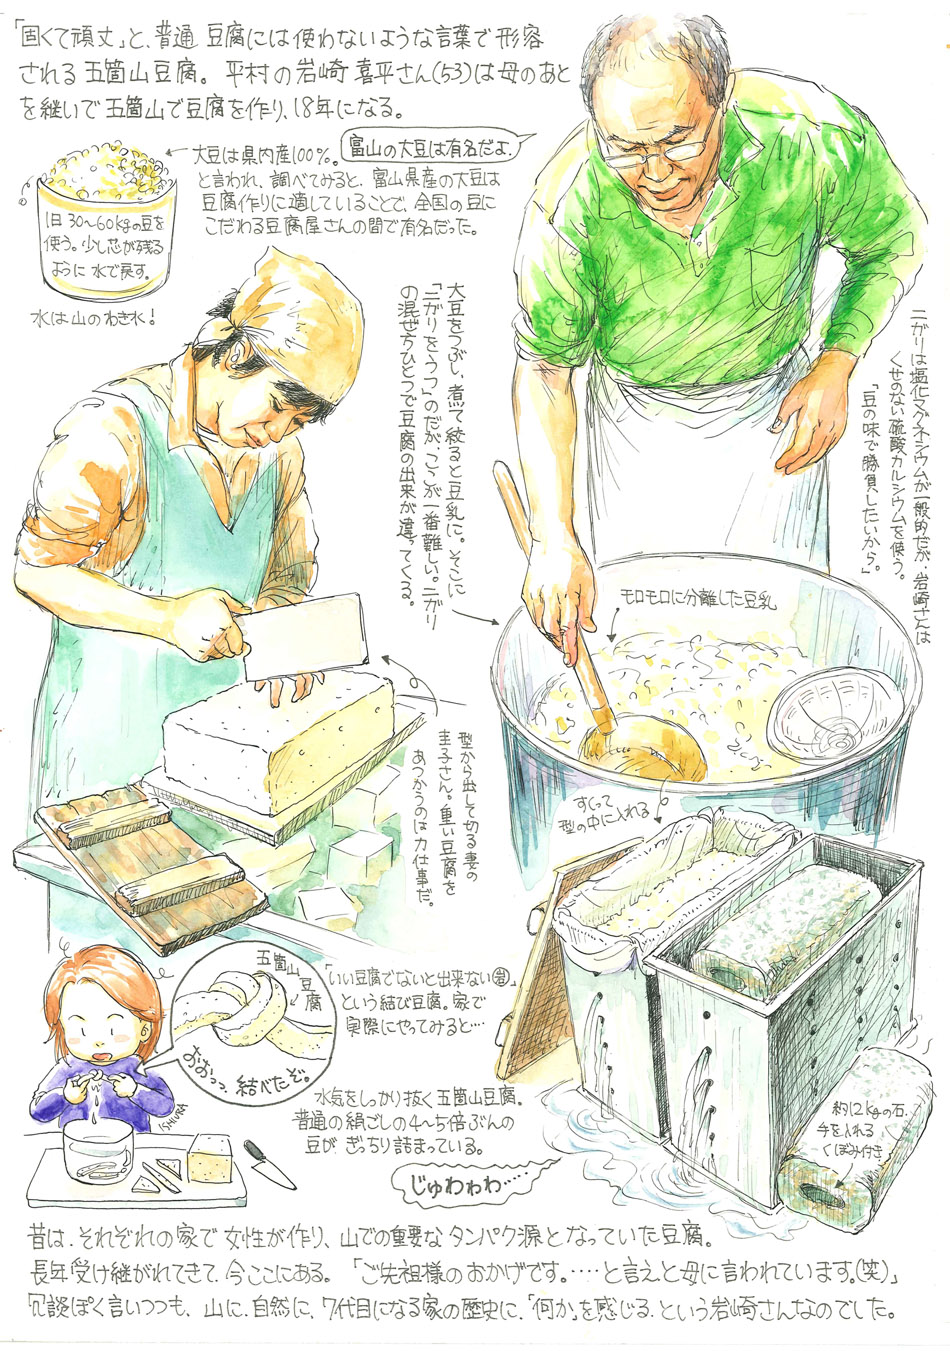 「固くて頑丈」と、普通 豆腐には使わないような言葉で形容
される五箇山豆腐。 平村の岩崎 喜平さん(53)は母のあと
を継いで五箇山で豆腐を作り、18年になる。
大豆は県内産100%。
富山の大豆は有名だよ.
と言われ、調べてみると、富山県産の大豆は
豆腐作りに適していることで、全国の豆に
こだわる豆腐屋さんの間で有名だった。
1日 30〜60kgの豆を
使う。少し芯が残る
ように 水で戻す。
水は山のわき水!
大豆をつぶし、煮て絞ると豆乳に。そこに
「ニガリをうつ」のだが、ここが一番難しい。ニガリ
の混ぜ方ひとつで豆腐の出来が違ってくる。
ニガリは塩化マグネシウムが一般的だが、岩崎さんは
くせのない硫酸カルシウムを使う。
「豆の味で勝負したいから。」
モロモロに分離した豆乳
型から出して切る妻の
圭子さん。重い豆腐を
あつかうのは力仕事だ。
すくって
型の中に入れる
五箇山
豆腐
おおっっ、結べたぞ。
「いい豆腐でないと出来ない(岩)」
という結び豆腐。家で
実際にやってみると…
ISHIURA
水気をしっかり抜く五箇山豆腐.
普通の絹ごしの4〜5倍ぶんの
豆が ぎっちり詰まっている。
じゅわわゎ……
約12kgの石.
手を入れる
くぼみ付き
昔は、それぞれの家で女性が作り、山での重要なタンパク源となっていた豆腐。
長年受け継がれてきて、今ここにある。 「ご先祖様のおかげです。‥‥と言えと母に言われています。(笑)」
冗談ぽく言いつつも、山に、自然に、7代目になる家の歴史に、「何か」を感じる、という岩崎さんなのでした。